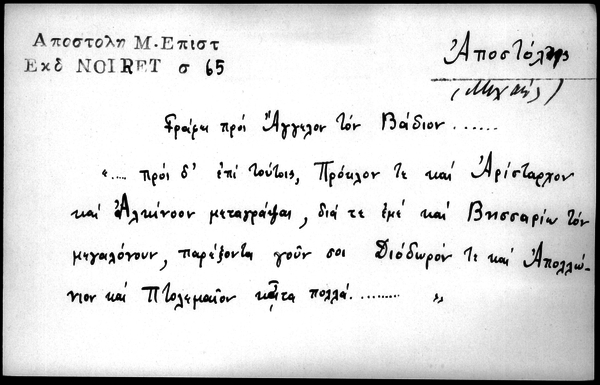 Αποστολη Μ. Επιστ
Εκδ NOIRET σ 65
Ἀποστόλης
(Μιχαήλ)
Γράφει πρὸς Ἄγγελον τὸν Βάδιον ......
«.... πρὸς δ' ἐπὶ τούτοις, Πρόκλον τε καὶ Ἀρίσταρχον
καὶ Ἀλκίνοον μεταγράψαι, διά τε ἐμὲ καὶ Βησσαρίω τὸν
μεγαλόνουν, παρέξοντα γοῦν σοι Διόδωρόν τε καὶ Ἀπολλώ-
νιον καὶ Πτολεμαῖον κᾆτα πολλά.......... »